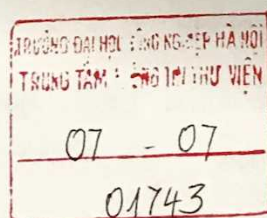 TRƯỜNG ĐẠI HỌC CÔNG NGHIỆP HÀ NỘI
TRUNG TÂM THÔNG TIN THƯ VIỆN
07 - 07
01743